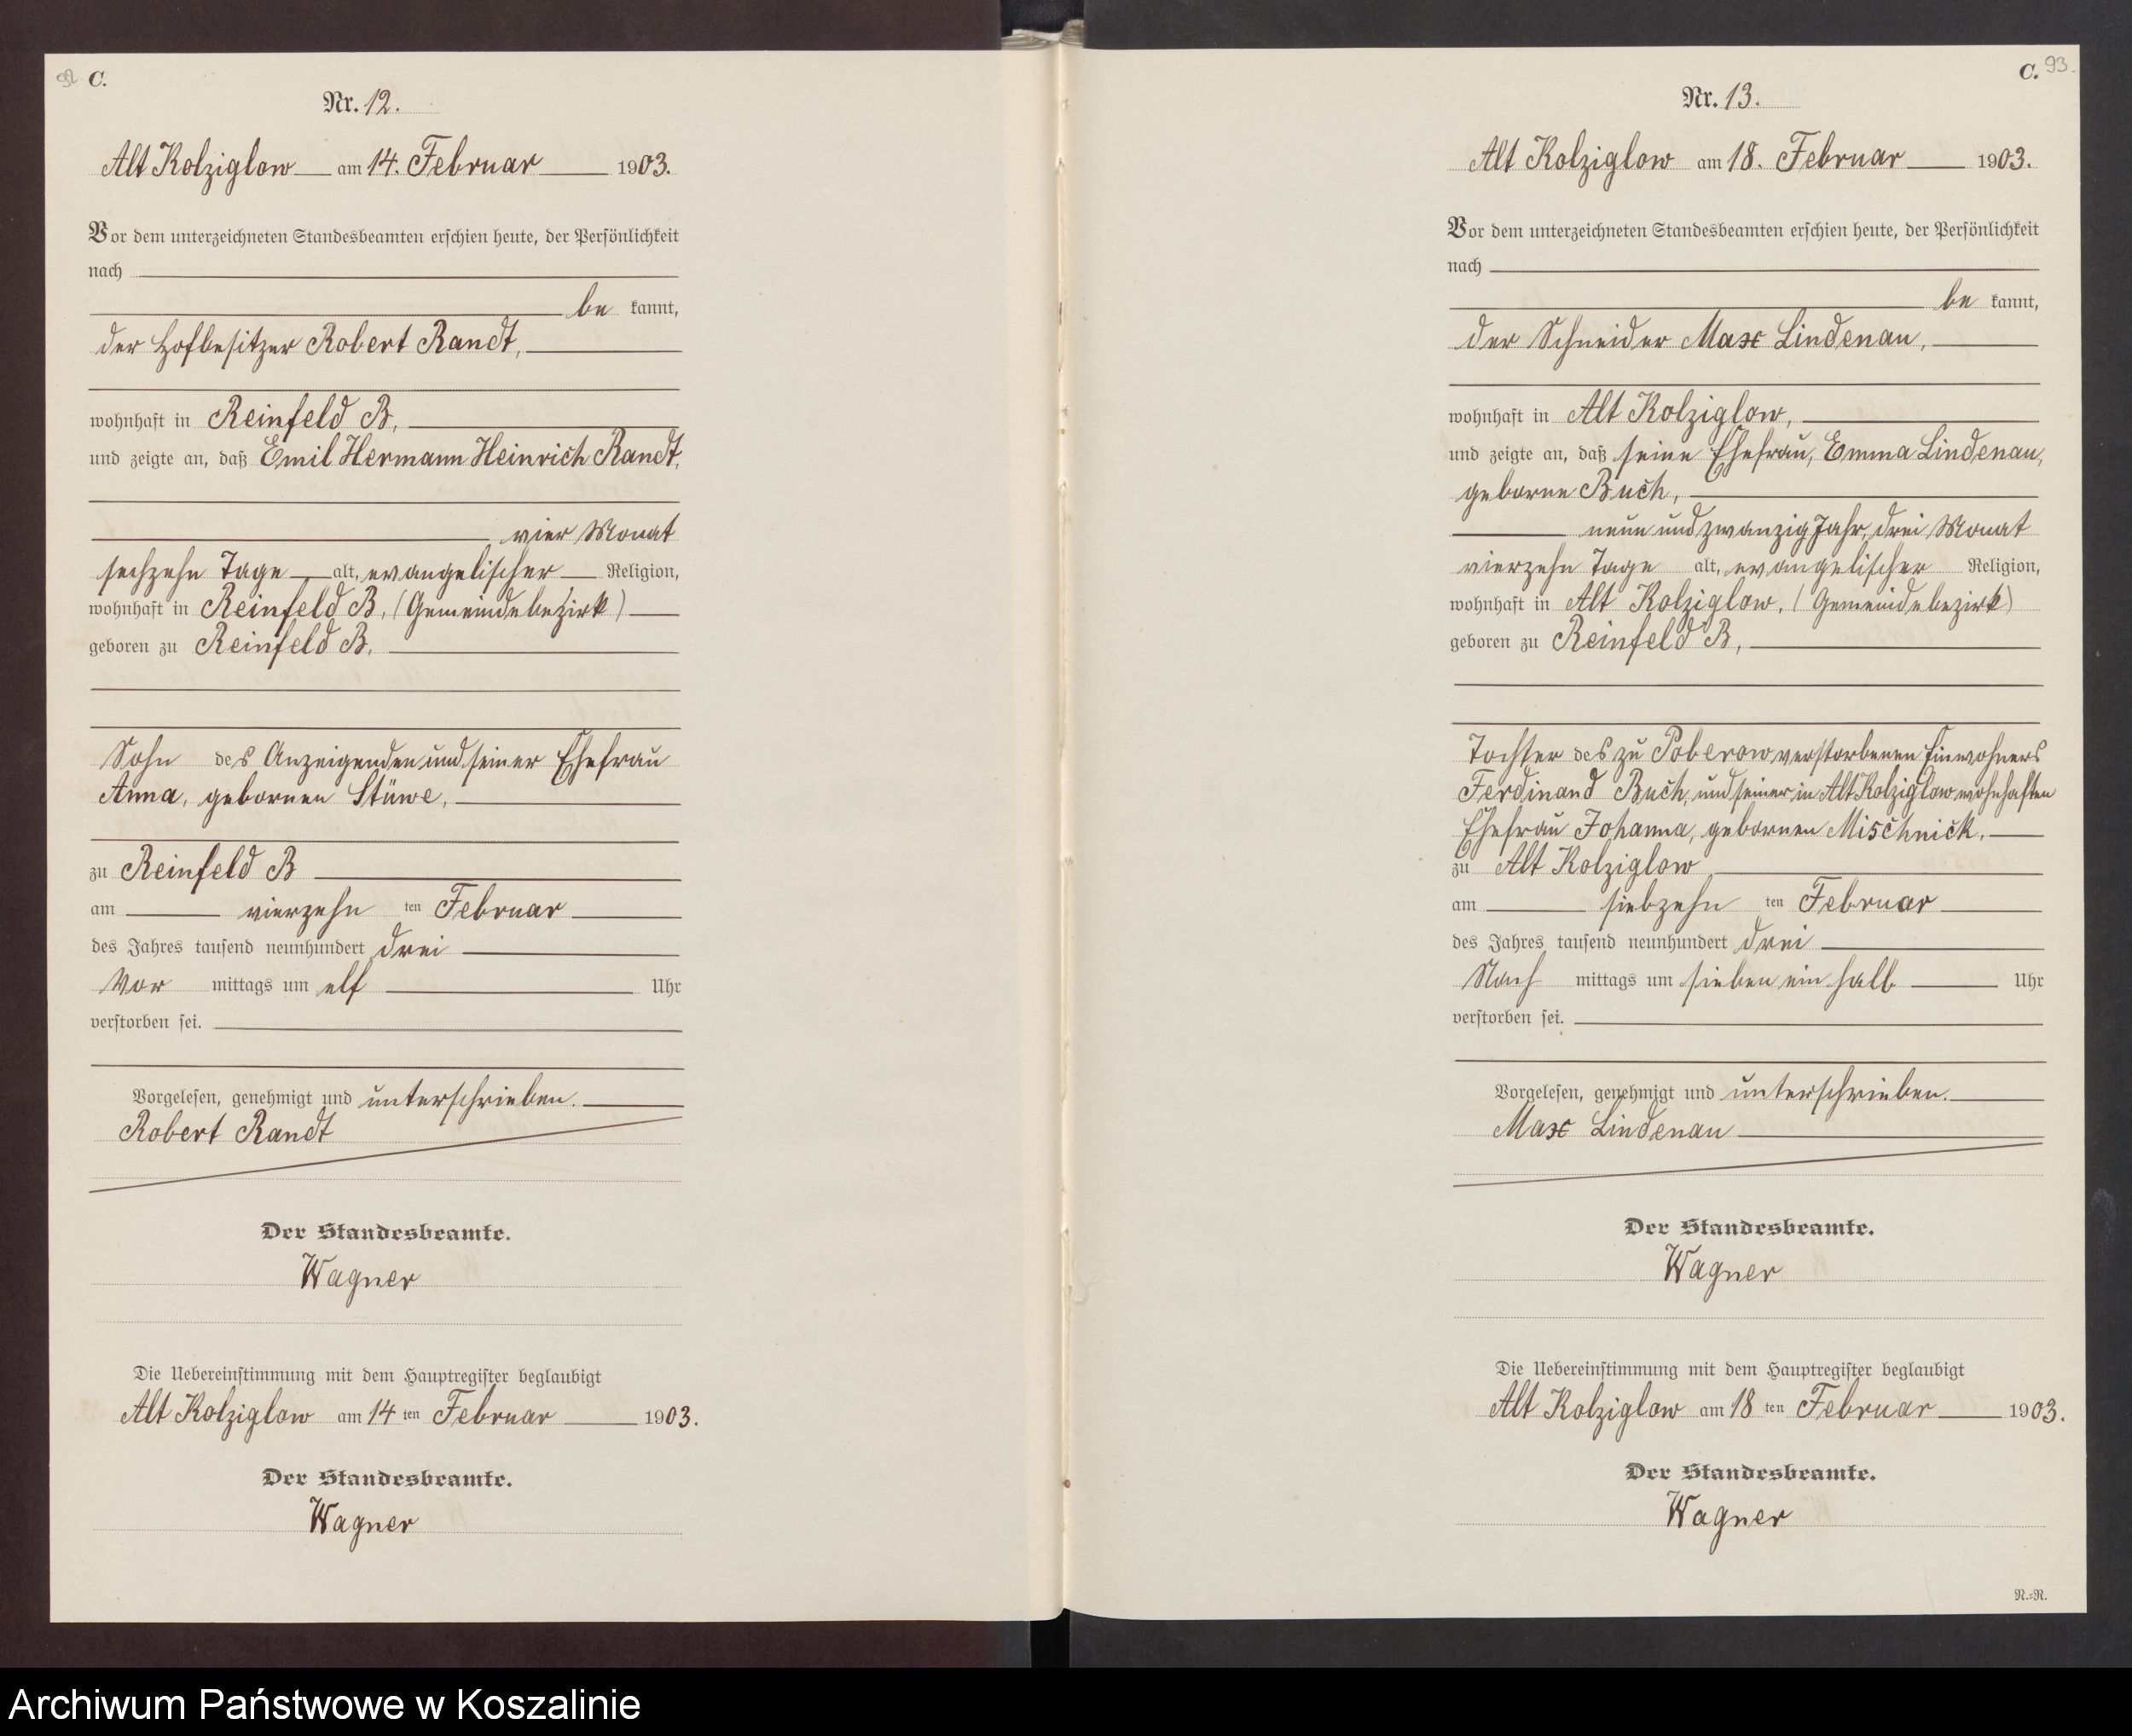 92 C.
Nr. 12.
Alt Kolziglow am 14. Februar 1903.
Vor dem unterzeichneten Standesbeamten erschien heute, der Persönlichkeit
nach
be kannt,
der Hofbesitzer Robert Randt,
wohnhaft in Reinfeld B,
und zeigte an, daß Emil Hermann Heinrich Randt,
vier Monat
sechzehn Tage alt, evangelischer Religion,
wohnhaft in Reinfeld B, (Gemeindebezirk)
geboren zu Reinfeld B,
Sohn des Anzeigenden und seiner Ehefrau
Anna, gebornen Stüwe,
zu Reinfeld B
am vierzehn ten Februar
des Jahres tausend neunhundert drei
Vor mittags um elf Uhr
verstorben sei.
Vorgelesen, genehmigt und unterschrieben.
Robert Randt
Der Standesbeamte.
Wagner
Die Uebereinstimmung mit dem Hauptregister beglaubigt
Alt Kolziglow am 14 ten Februar 1903.
Der Standesbeamte.
Wagner
C. 93.
Nr. 13.
Alt Kolziglow am 18. Februar 1903.
Vor dem unterzeichneten Standesbeamten erschien heute, der Persönlichkeit
nach
be kannt,
der Schneider Max Lindenau,
wohnhaft in Alt Kolziglow,
und zeigte an, daß seine Ehefrau, Emma Lindenau,
geborne Buch,
neun und zwanzig Jahr, drei Monat
vierzehn Tage alt, evangelischer Religion,
wohnhaft in Alt Kolziglow, (Gemeindebezirk)
geboren zu Reinfeld B,
Tochter des zu Poberow verstorbenen Einwohners
Ferdinand Buch, und seiner in Alt Kolziglow wohnhaften
Ehefrau Johanna, gebornen Mischnick,
zu Alt Kolziglow
am siebzehn ten Februar
des Jahres tausend neunhundert drei
Nach mittags um sieben ein halb Uhr
verstorben sei.
Vorgelesen, genehmigt und unterschrieben.
Max Lindenau
Der Standesbeamte.
Wagner
Die Uebereinstimmung mit dem Hauptregister beglaubigt
Alt Kolziglow am 18 ten Februar 1903.
Der Standesbeamte.
Wagner
N.=R.
Archiwum Państwowe w Koszalinie